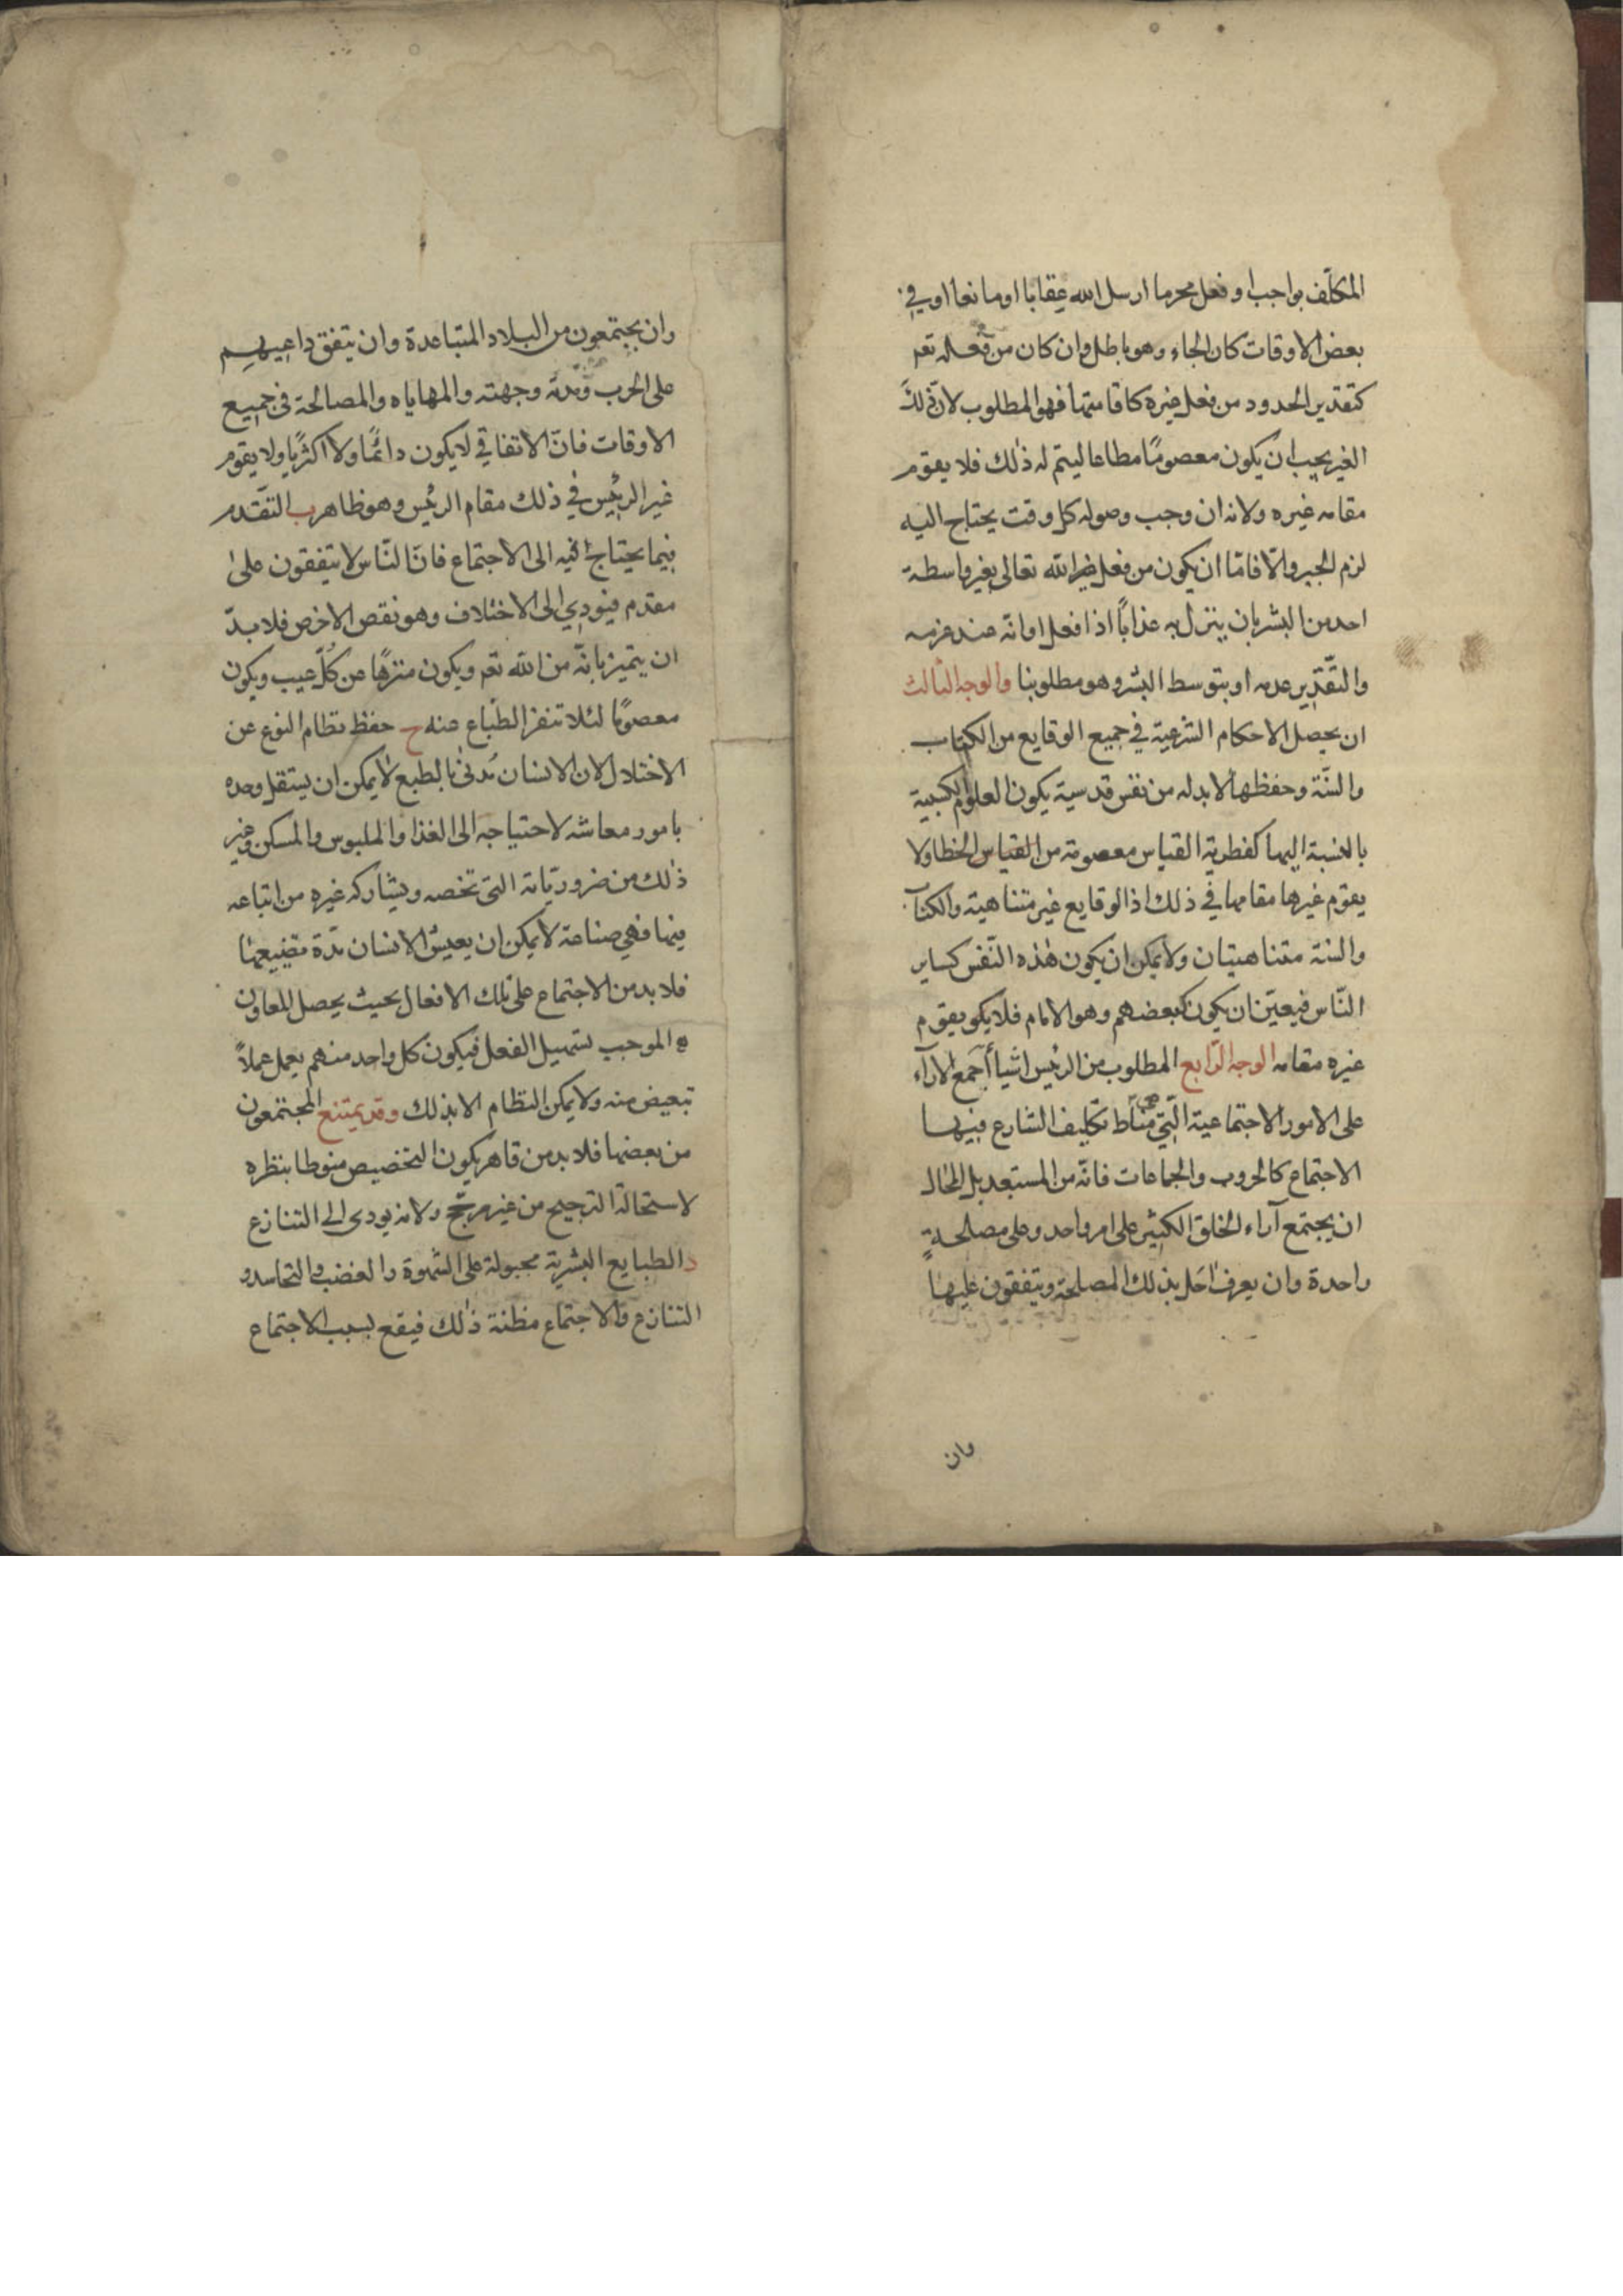 المكلّف بواجب او فعل محرما ارسل الله عقابا او مانعا او في
بعض الاوقات كان الجاء وهو باطل وان كان من فعله تعم
كتقدير الحدود من فعل غيره كاقامتها فهو المطلوب لانّ ذلك
الغير يجب ان يكون معصومًا مطاعا ليتم له ذلك فلا يقوم
مقامه غيره ولانه ان وجب وصوله كل وقت يحتاج اليه
لزم الجبر والّا فامّا ان يكون من فعل الله تعالى بغير واسطة
احد من البشر بان ينزل به عذابًا اذا فعل او انّه عند عزمه
والتّقدير عدمه او بتوسط البشر وهو مطلوبنا والوجه الثالث
ان يحصل الاحكام الشرعية في جميع الوقايع من الكتاب
والسنّة وحفظها لا بد له من نفس قدسية يكون العلوم الكسبية
بالنسبة اليها كفطرية القياس معصومة من القياس الخطا ولا
يقوم غيرها مقامها في ذلك اذ الوقايع غير متناهية والكتاب
والسنة متناهيتان ولا يمكن ان يكون هذه النّفس كساير
النّاس فيعيّن ان يكون كبعضهم وهو الامام فلا يكو يقوم
غيره مقامه الوجه الرّابع المطلوب من الرئيس اشيا أ جمع الآراء
على الامور الاجتماعية الّتي مناط تكليف الشارع فيها
الاجتماع كالحروب والجماعات فانّه من المستبعد بل المحال
ان يجتمع آراء الخلق الكثير على امر واحد وعلى مصلحةٍ
واحدة وان يعرف احل بذلك المصلحة ويتفقون عليها
وان
وان يجتمعون من البلاد المتباعدة وان يتفق داعيهم
على الحرب ومدّته وجهته والمهاياه والمصالحة في جميع
الاوقات فانّ الاتفاقي لا يكون دائمًا ولا اكثريًا ولا يقوم
غير الرئيس في ذلك مقام الرئيس وهو ظاهر ب التّقدم
فيما يحتاج فيه الى الاجتماع فانّ النّاس لا يتفقون على
مقدم فيودي الى الاختلاف وهو نقص الاخرص فلا بدّ
ان يتميز بانّه من الله تعم ويكون منزهًا عن كُلّ عيب ويكون
معصومًا لئلا تنفر الطباع عنه ح حفظ نظام النوع عن
الاختلال لان الانسان مُدنى بالطبع لا يمكن ان يستقل وحده
بامور معاشه لاحتياجه الى الغذا والملبوس والمسكن وغير
ذلك من ضروريّاته التى تخصه ويشاركه غيره من اتباعه
فيها فهي صناعة لا يمكن ان يعيش الانسان مدّة
فلا بد من الاجتماع على تلك الافعال بحيث يحصل المعاون
الموجب تسهيل الفعل فيكون كل واحد منهم يعمل عملاً
تبعيض منه ولا يمكن النظام الا بذلك وقد يمتنع المجتمعون
من بعضها فلا بد من قاهر يكون التخصيص منوطا بنظره
لاستحالة الترجيح من غير مرجّح ولانه يودى الى التنازع
د الطبايع البشرية مجبولة على الشهوة والغضب والتحاسد و
التنازع والاجتماع مظنة ذلك فيقع بسبب الاجتماع